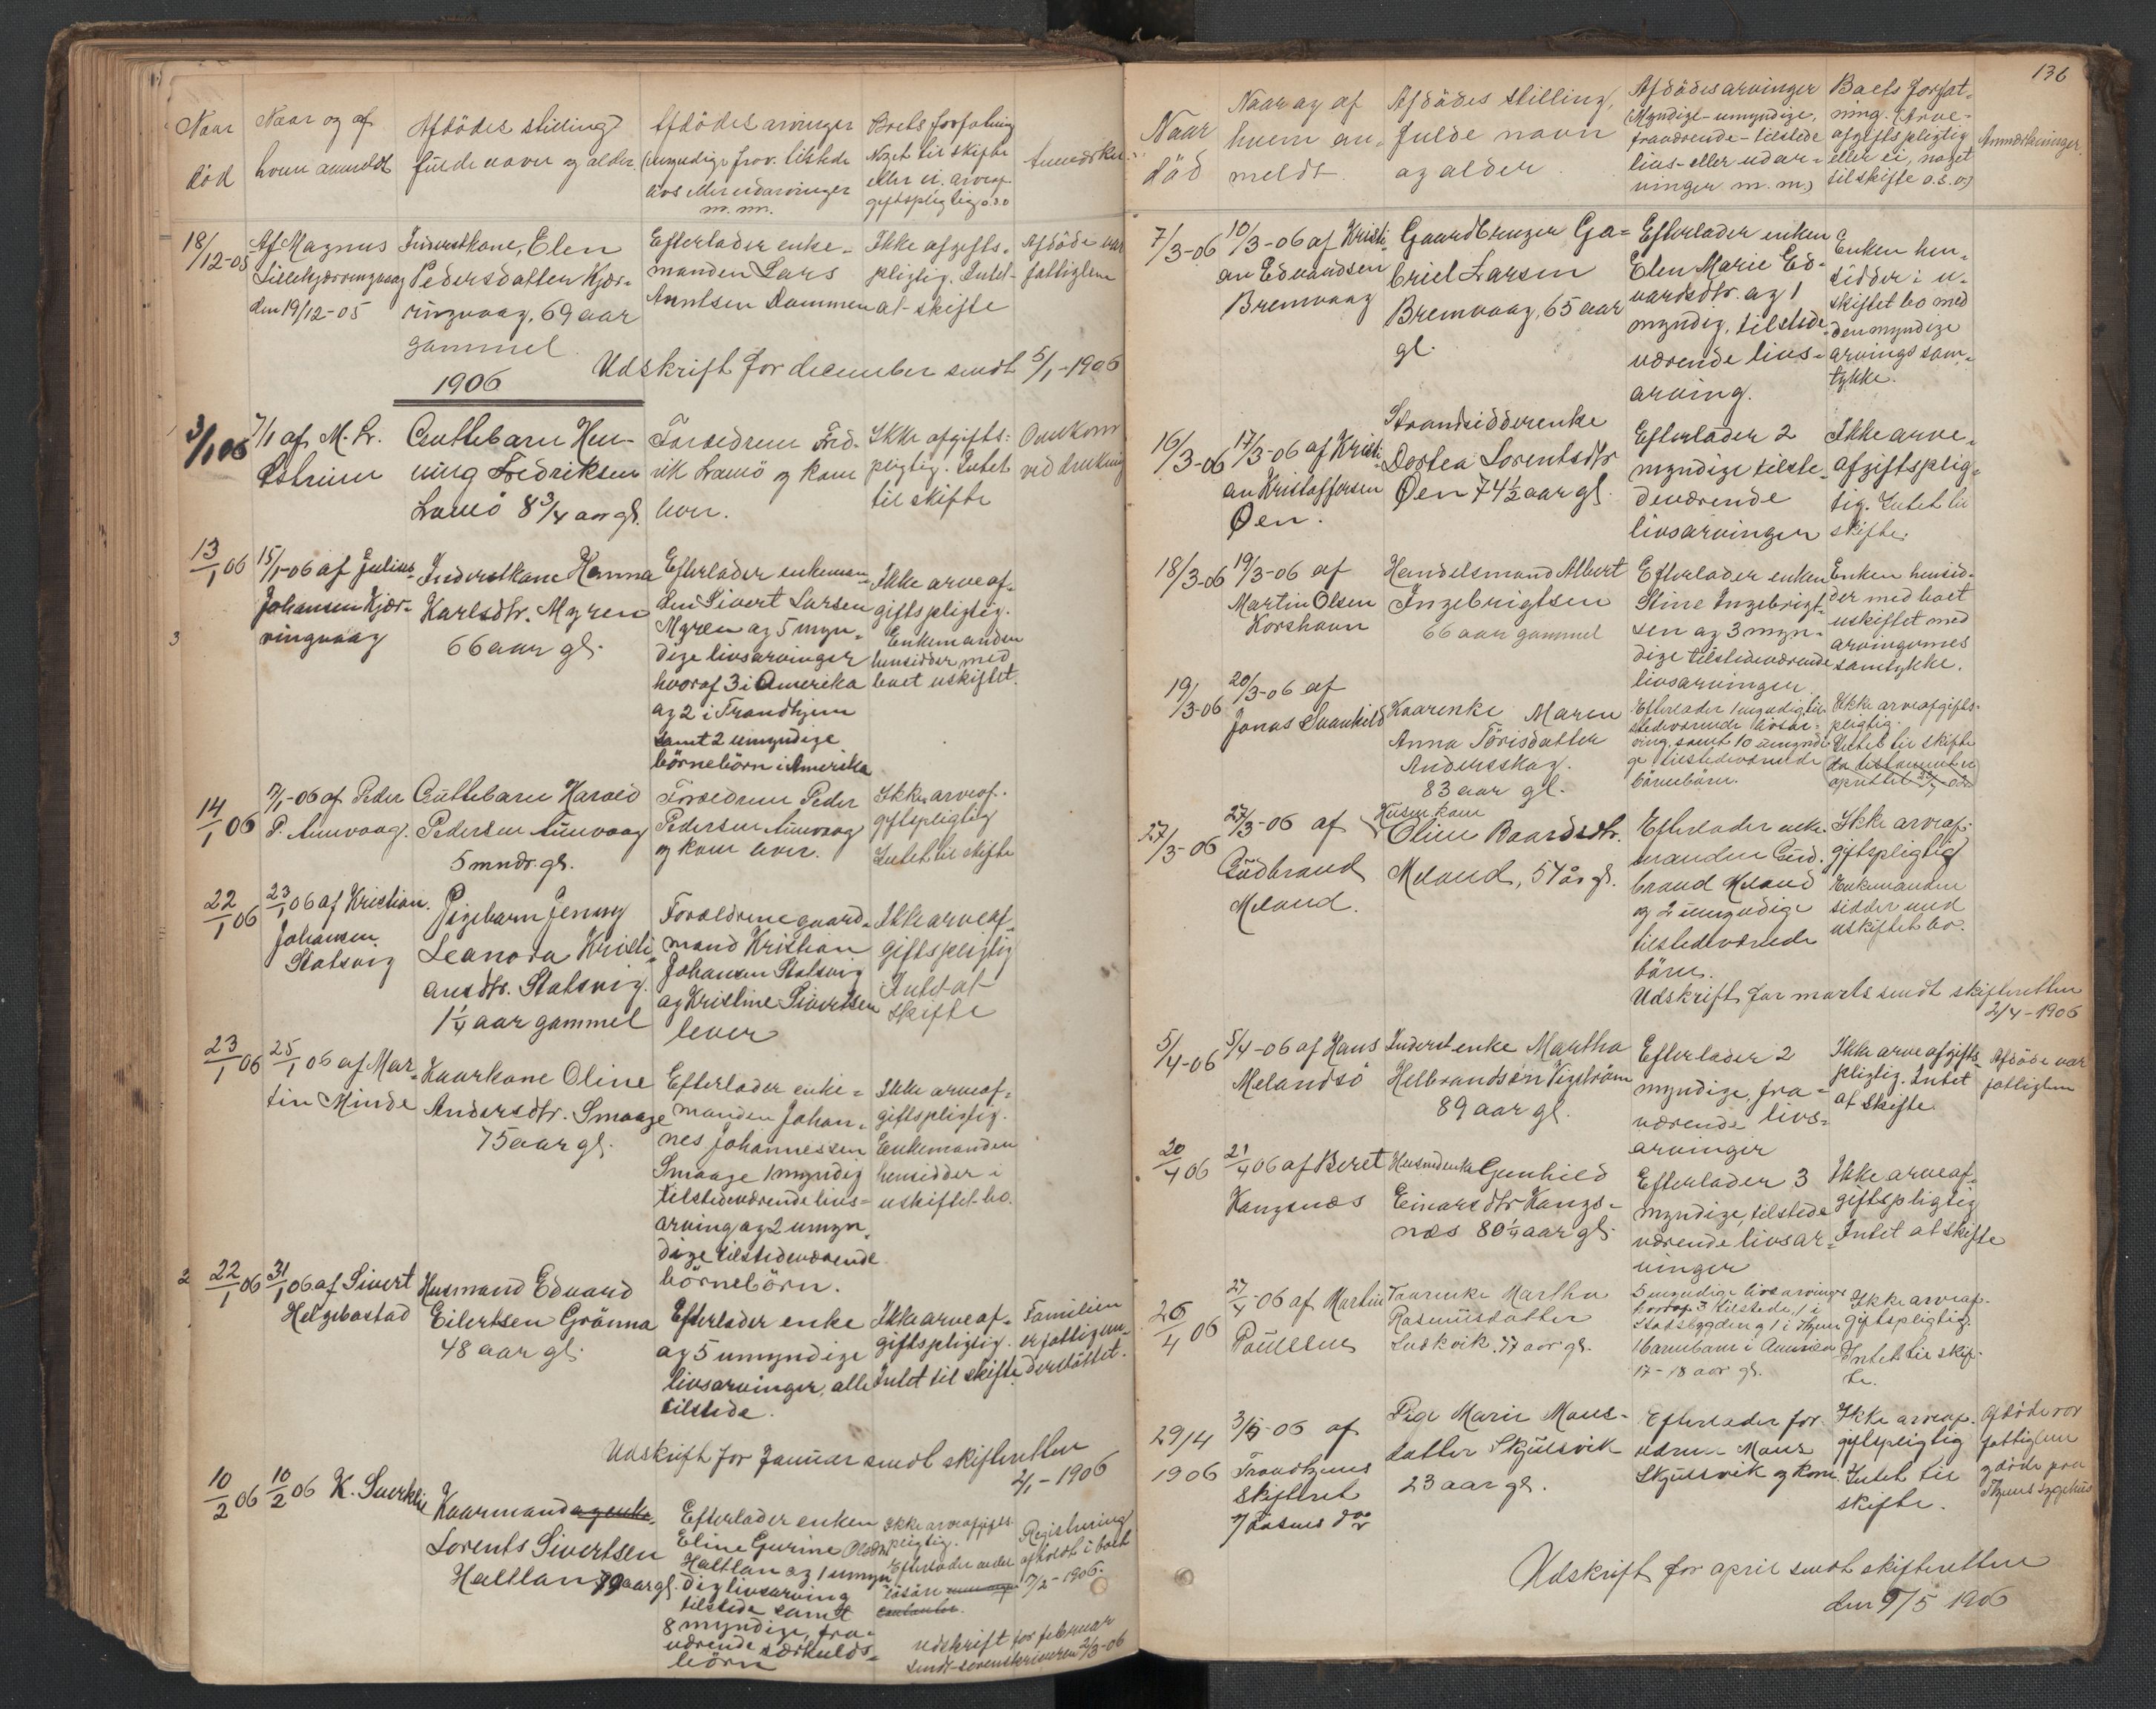 Naar
död
Naar og af
hvem anmeldt
Afdödes stilling
fulde navn og alder
Afdödes arvinger
(umyndige frav. tilstede
livs eller udarvinger
m. m.
Boets forfatning
Noget til skifte
eller ei. arveaf
giftspligtig o.s.v
18/12-05
Af Magnus
Lillekjærringvaag
den 19/12-05
Inderstkone, Elen
Pedersdatter Kjær-
ringvaag, 69 aar
gammel
Efterlader enke-
manden Lars
Arntsen Dammen
Ikke afgifts-
pligtig. Intet
at skifte
Afdöde var
fattiglem
Udskrift for december sendt 5/1-1906
1906
3/1 06
7/1 af M. L.
Guttebarn Hen-
ning Fredriksen
8 3/4 aar gl.
Forældrene Fred-
rik og kone
lever.
Ikke afgifts-
pligtig. Intet
til skifte
Omkom
ved drukning
13/1 06
15/1-06 af Julius
Johansen Kjær-
ringvaag
Inderstkone Hanna
Karlsdtr. Myren
66 aar gl.
Efterlader enkeman-
den Sivert Larsen
Myren og 5 myn-
dige livsarvinger
hvoraf 3 i Amerika
og 2 i Trondhjem
samt 2 umyndige
börnebörn i Amerika
Ikke arveaf-
giftspligtig.
Enkemanden
hensidder med
boet uskiftet.
3
14/1 06
17/1-06 af Peder
P. Aunvaag.
Guttebarn Harold
Pedersen Aunvaag
5 mndr. gl.
Forældrene Peder
Pedersen Aunvaag
og kone lever.
Ikke arveaf-
giftspligtig
Intet til skifte
22/1 06
23/1 06 af Kristian
Johansen
Stolsvig
Pigebarn Jenny
Leanora Kristi-
ansdtr. Stolsvig.
1 1/4 aar gammel
Forældrene gaard-
mand Kristian
Johansen Stolsvig
og Kristine Sivertsen
lever
Ikke arveaf-
giftspligtig
Intet at
skifte
23/1 06
25/1 06 af Mar-
tin Minde
Kaarkone Oline
Andersdtr. Smaage
75 aar gl.
Efterlader enke-
manden Johan-
nes Johannessen
Smaage 1 myndig
tilstedeværende livs-
arving og 2 umyn-
dige tilstedeværende
börnebörn.
Ikke arveaf-
giftspligtig.
Enkemanden
hensidder i
uskiftet bo.
2
22/1 06
31/1 06 af Sivert
Helgebostad
Husmand Edvard
Eilertsen Grönna
48 aar gl.
Efterlader enke
og 5 umyndige
livsarvinger, alle
tilstede.
Ikke arveaf-
giftspligtig.
Intet til skifte
Familien
er fattigun-
derstöttet.
Udskrift for Januar sendt skifteretten
2/1-1906
10/2 06
10/2 06 K. Sverkli
Kaarmand og enke.
Lorents Sivertsen
Haltlan 79 aar gl.
Efterlader enken
Eline Gurine Olsdtr
Haltlan og 1 umyn-
dig livsarving
tilstede samt
8 myndige, fra-
værende særkulds-
börn
Ikke arveafgifts-
pligtig.
Efterlader endel
lösöre
Registrering
afholdt i boet
17/2-1906.
Udskrift for februar
sendt sorenskriveren 2/3-06
136
Naar
död
Naar og af
hvem an-
meldt
Afdödes stilling,
fulde navn
og alder
Afdödes arvinger
(Myndige-umyndige,
fraværende-tilstede
livs- eller udar-
vinger m. m)
Boets forfat-
ning. (Arve-
afgiftspligtig
eller ei, noget
til skifte o.s.v)
Anmærkninger.
7/3-06
10/3-06 af Kristi-
an Edvardsen
Bremvaag
Gaardbruger Ga-
briel Larsen
Bremvaag, 65 aar
gl.
Efterlader enken
Elen Marie Ed-
vardsdtr. og 1
myndig, tilstede-
værende livs-
arving.
Enken hen-
sidder i u-
skiftet bo med
den myndige
arvings sam-
tykke.
16/3-06
17/3-06 af Kristi-
an Kristoffersen
Øen.
Strandsidderenke
Dortea Lorentsdtr
Øen 74 1/2 aar gl.
Efterlader 2
myndige tilste-
deværende
livsarvinger
Ikke arve-
afgiftsplig-
tig. Intet til
skifte.
18/3-06
19/3-06 af
Martin Olsen
Korshavn
Handelsmand Albert
Ingebrigtsen
66 aar gammel
Efterlader enken
Stine Ingebrigt-
sen og 3 myn-
dige tilstedeværende
livsarvinger
Enken hensid-
der med boet
uskiftet med
arvingernes
samtykke.
19/3-06
20/3-06 af
Jonas Svanhild
Kaarenke Maren
Anna Törisdatter
Andersskog.
83 aar gl.
Efterlader 1 myndig til-
stedeværende livsar-
ving, samt 10 umyndi-
ge tilstedeværende
börnebörn.
Ikke arveafgifts-
pligtig.
Intet til skifte
27/3-06
27/3-06 af
Gudbrand
Meland.
Husm.kone
Oline Baardsdtr.
Meland, 57 år gl.
Efterlader enke-
manden Gud-
brand Meland
og 2 umyndige
tilstedeværende
börn.
Ikke arveaf-
giftspligtig
Enkemanden
sidder med
uskiftet bo.
Udskrift for marts sendt skifteretten
2/4-1906
5/4-06
5/4-06 af Hans
Melandsö
Inderstenke Martha
Helbrandsen Vigström
89 aar gl.
Efterlader 2
myndige, fra-
værende livs-
arvinger
Ikke arveafgifts-
pligtig. Intet
at skifte
Afdöde var
fattiglem
20/4 06
21/4 06 af Beret
Kongsnæs
Husmdenke Gunhild
Einarsdtr Kongs-
næs 80 1/4 aar gl.
Efterlader 3
myndige, tilstede
værende livsar-
vinger
Ikke arveaf-
giftspligtig
Intet at skifte
26/4 06
27/4-06 af Martin
Poulsen
Kaarenke Martha
Rasmusdatter
Sudkvik. 77 aar gl.
5 myndige livsarvinge
hvoraf 3 tilstede, 1 i
Stadsbygden og 1 i Thjem
1 barnebarn i Amerika
17-18 aar gl.
Ikke arveaf-
giftspligtig.
Intet til skif-
te.
29/4
1906
3/5-06 af
Trondhjems
Skifteret
Pige Marie Mons-
datter Skjulsvik
23 aar gl.
Efterlader for-
ældrene Mons
Skjulsvik og kone.
Ikke arveaf-
giftspligtig
Intet til
skifte.
Afdöde var
fattiglem
og döde paa
Thjems Sygehus
Udskrift for april sendt skifteretten
den 9/5 1906